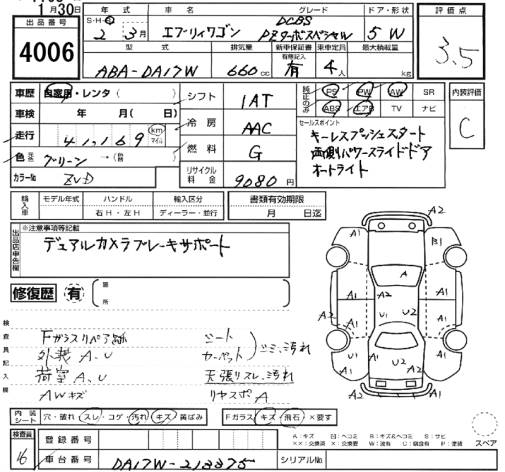 1月30日
出品番号 4006
年式 車名 グレード ドア・形状
S・H・R 2年 3月 エブリィワゴン DCBS PZターボスペシャル 5W
型式 排気量 新車保証書 有無記入 乗車定員 最大積載量
ABA-DA17W 660cc 有 4人 kg
評価点 3.5
車歴 自家用・レンタ( )
車検 年 月( 日)
走行 41,169 km マイル
色 グリーン →( )
カラーNo ZVD
シフト 1AT
冷房 AAC
燃料 G
リサイクル料金 9080円
純正のみ PS PW AW SR
ABS エアB TV ナビ
セールスポイント
キーレスプッシュスタート
両側パワースライドドア
オートライト
内装評価 C
輸入車 モデル年式 ハンドル 右H・左H 輸入区分 ディーラー・並行
書類有効期限 月 日迄
出品店申告欄 ※注意事項等記載
デュアルカメラブレーキサポート
修復歴 有 箇所
検査員記入欄
Fガラスリペア跡
外装A、U
荷室A、U
AWキズ
シート
カーペット シミ、汚れ
天張リスレ、汚れ
リヤスポA
内装シート 穴・破れ スレ・コゲ・汚れ キズ 黄ばみ
Fガラス キズ・飛石 ×要す
検査員 16
登録番号
車台番号 DA17W-213375
シリアルNo.
A2
A1 B1
A
A2 A1 A2 A1
A2 A1 A2
U1 U2 U1
A1 U2
A2
スペア
A:キズ U:ヘコミ B:キズ&ヘコミ S:サビ
××:交換済 X:要交換 W:波有 C:腐食有 P:塗装